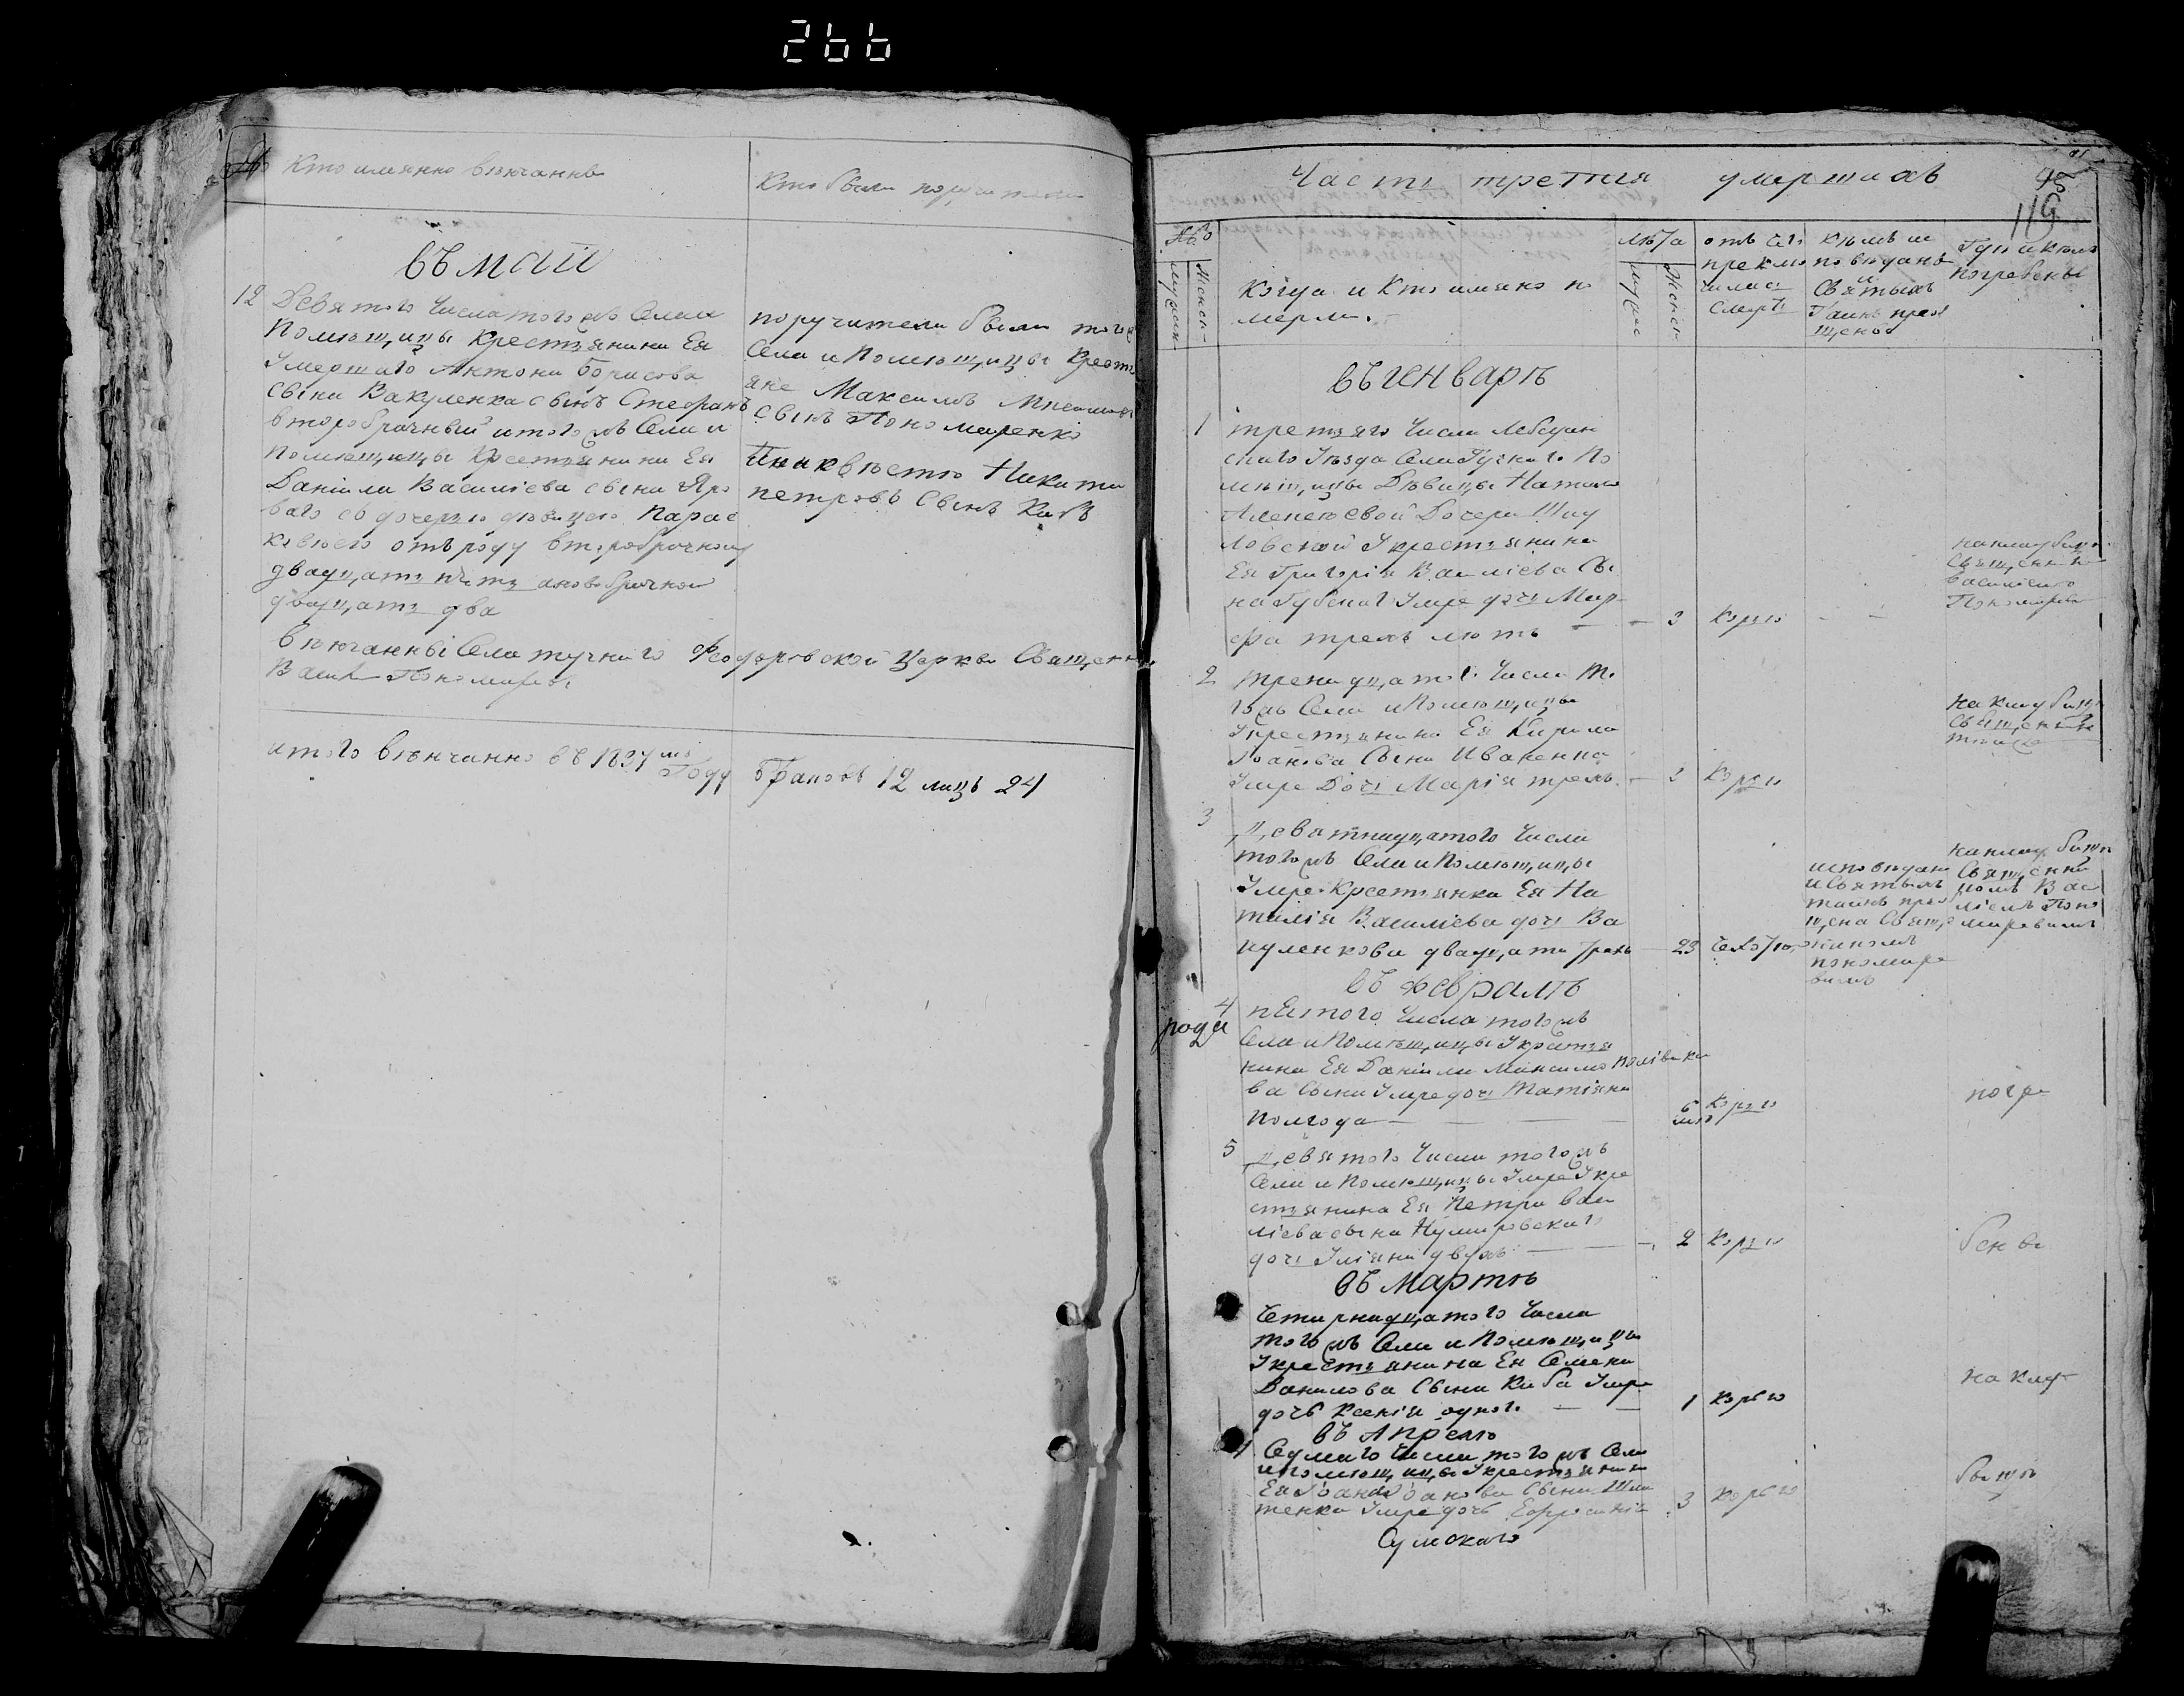 266
№ Кто имянно венчанны
Кто были поручители
въ маіи
12 Девятого Числа того жъ Села и
Помѣщицы Крестьянина Ея
Умершаго Антона Борисова
сына Вакуленка сынъ Стефанъ
второбрачный и того жъ Села и
Помѣщицы Крестьянина Ея
Даніила Василіева сына Яро
ваго съ дочерью дѣвицею Парас
кевіею отъ роду второбрачному
двадцать пять а новобрачной
двадцать два
Поручители были того
Села и Помѣщицы Крестья
яне Максимъ
сынъ Пономаренко
Никита
петровъ Сынъ Кибъ
вѣнчанны Села тучнаго Феодоровской Церкви Священн
Пономарев
итого вѣнчанно въ 1837 мъ Году браковъ 12 лицъ 24
Часть третия умерших
95
119
№
Мужеск
Женск
Когда и Кто имяно по
мерли.
лѣта
Мужес
Женск
отъ чего
приклю
чилась
Смерть
кѣмъ и
поведанъ
и
Святыхъ
Таинъ прео
щенъ
Где и кемъ
погребены
въ Генварѣ
1 третяго Числа Лебедин
скаго Уезда Села Тучнаго По
мѣщицы Дѣвицы Натали
Алексеевой Дочери Шид
ловской У крестьянина
Ея Григорія Василіева Сы
на Губскаго Умре дочь Мар
фа трехъ летъ — — 3 Корью
на кладбищ
Священн
Василіем
Пономарев
2 тренадцатого Числа то
гожъ Села и Помѣщицы
Укрестьянина Ея Кирила
Іоанова Сына Ивакенка
Умре Дочь Марія трехъ — 3 Корью
на кладбищ
Священни
темже
3 Девятнадцатого Числа
того жъ Села и Помѣщицы
Умре Крестьянка Ея На
талія Василіева дочь Ва
куленкова двадцати трехъ — 23 Чехотою
исповедана
и Святыхъ
таинъ прео
щена Священ
никомъ
пономаре
вымъ
на кладбищ
Священни
комъ Васи
ліемъ Поно
маревымъ
въ Февралѣ
4 пятого Числа того жъ
рода
Села и Помѣщицы Укрестья
нина Ея Даніила Максимо
ва Сына Умре дочь Татіяна
полгода — — — 6 мѣ Корью
погре
5 Девятого Числа того жъ
Села и Помѣщицы Умре Укре
стьянина Ея Петра Васи
ліева сына
дочь Уліяна двухъ — — 2 Корью
бены
въ Мартѣ
Четирнадцатого Числа
того жъ Села и Помѣщицы
Укрестьянина Ея Семена
Данилова Сына Киба Умре
дочь Ксенія одного — — 1 Корью
на клад
въ Апрелѣ
Седмаго Числа того жъ Села
и помѣщицы Укрестьянина
Ея Іоана Іоанова Сына
тенка Умре дочь Ефросинія 3 Корью
бищѣ
Сумскаго